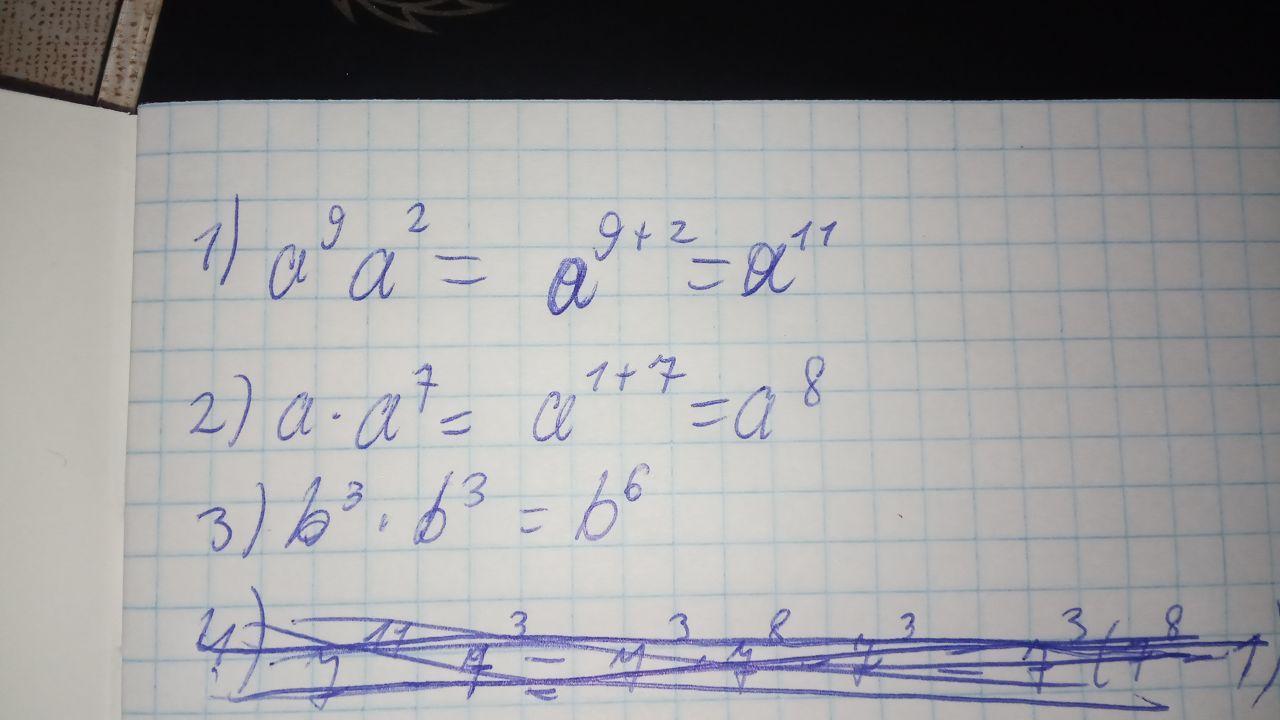 1) a⁹ a² = a⁹⁺² = a¹¹
2) a · a⁷ = a¹⁺⁷ = a⁸
3) b³ · b³ = b⁶